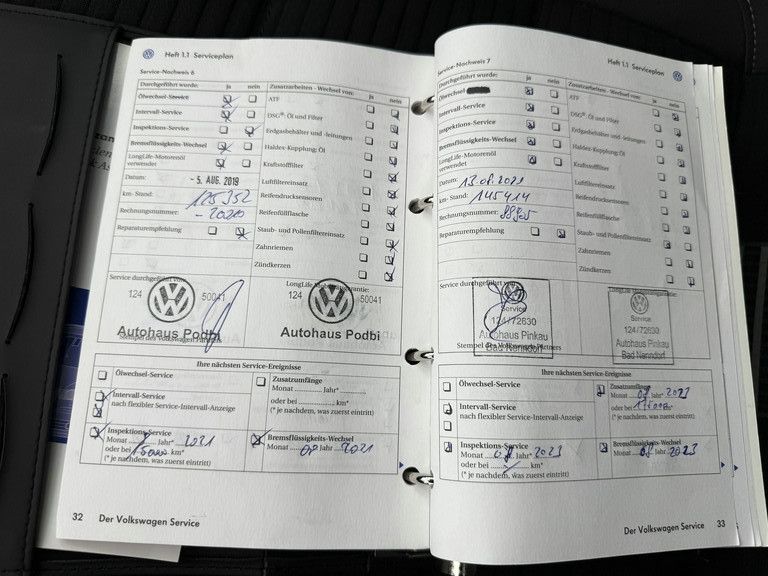 Heft 1.1 Serviceplan
Service-Nachweis 6
Durchgeführt wurde: ja nein
Ölwechsel-Service
Intervall-Service
Inspektions-Service
Bremsflüssigkeits-Wechsel
LongLife-Motorenöl
verwendet
Datum: - 5. AUG. 2019
km-Stand: 125 352
Rechnungsnummer: - 2020
Reparaturempfehlung
Zusatzarbeiten - Wechsel von: ja nein
ATF
DSG®: Öl und Filter
Erdgasbehälter und -leitungen
Haldex-Kupplung: Öl
Kraftstofffilter
Luftfiltereinsatz
Reifendrucksensoren
Reifenfüllflasche
Staub- und Pollenfiltereinsatz
Zahnriemen
Zündkerzen
Service durchgeführt von:
124 50041
Autohaus Podbi
Stempel des Volkswagen Partners
124 50041
Autohaus Podbi
Ihre nächsten Service-Ereignisse
Ölwechsel-Service
Intervall-Service
nach flexibler Service-Intervall-Anzeige
Inspektions-Service
Monat Jahr* 2021
oder bei km*
(* je nachdem, was zuerst eintritt)
Zusatzumfänge
Monat Jahr*
oder bei km*
(* je nachdem, was zuerst eintritt)
Bremsflüssigkeits-Wechsel
Monat 08 Jahr 2021
32 Der Volkswagen Service
Heft 1.1 Serviceplan
Service-Nachweis 7
Durchgeführt wurde: ja nein
Ölwechsel
Intervall-Service
Inspektions-Service
Bremsflüssigkeits-Wechsel
LongLife-Motorenöl
verwendet
Datum: 13.08.2021
km-Stand: 145414
Rechnungsnummer:
Reparaturempfehlung
Zusatzarbeiten - Wechsel von: ja nein
ATF
DSG®: Öl und Filter
Erdgasbehälter und -leitungen
Haldex-Kupplung: Öl
Kraftstofffilter
Luftfiltereinsatz
Reifendrucksensoren
Reifenfüllflasche
Staub- und Pollenfiltereinsatz
Zahnriemen
Zündkerzen
Service durchgeführt von:
Service
124/72630
Autohaus Pinkau
Bad Nenndorf
Stempel des Volkswagen Partners
Service
124/72630
Autohaus Pinkau
Bad Nenndorf
Ihre nächsten Service-Ereignisse
Ölwechsel-Service
Intervall-Service
nach flexibler Service-Intervall-Anzeige
Inspektions-Service
Monat 08 Jahr* 2023
oder bei km*
(* je nachdem, was zuerst eintritt)
Zusatzumfänge
Monat 08 Jahr* 2023
oder bei km*
(* je nachdem, was zuerst eintritt)
Bremsflüssigkeits-Wechsel
Monat 08 Jahr 2023
Der Volkswagen Service 33